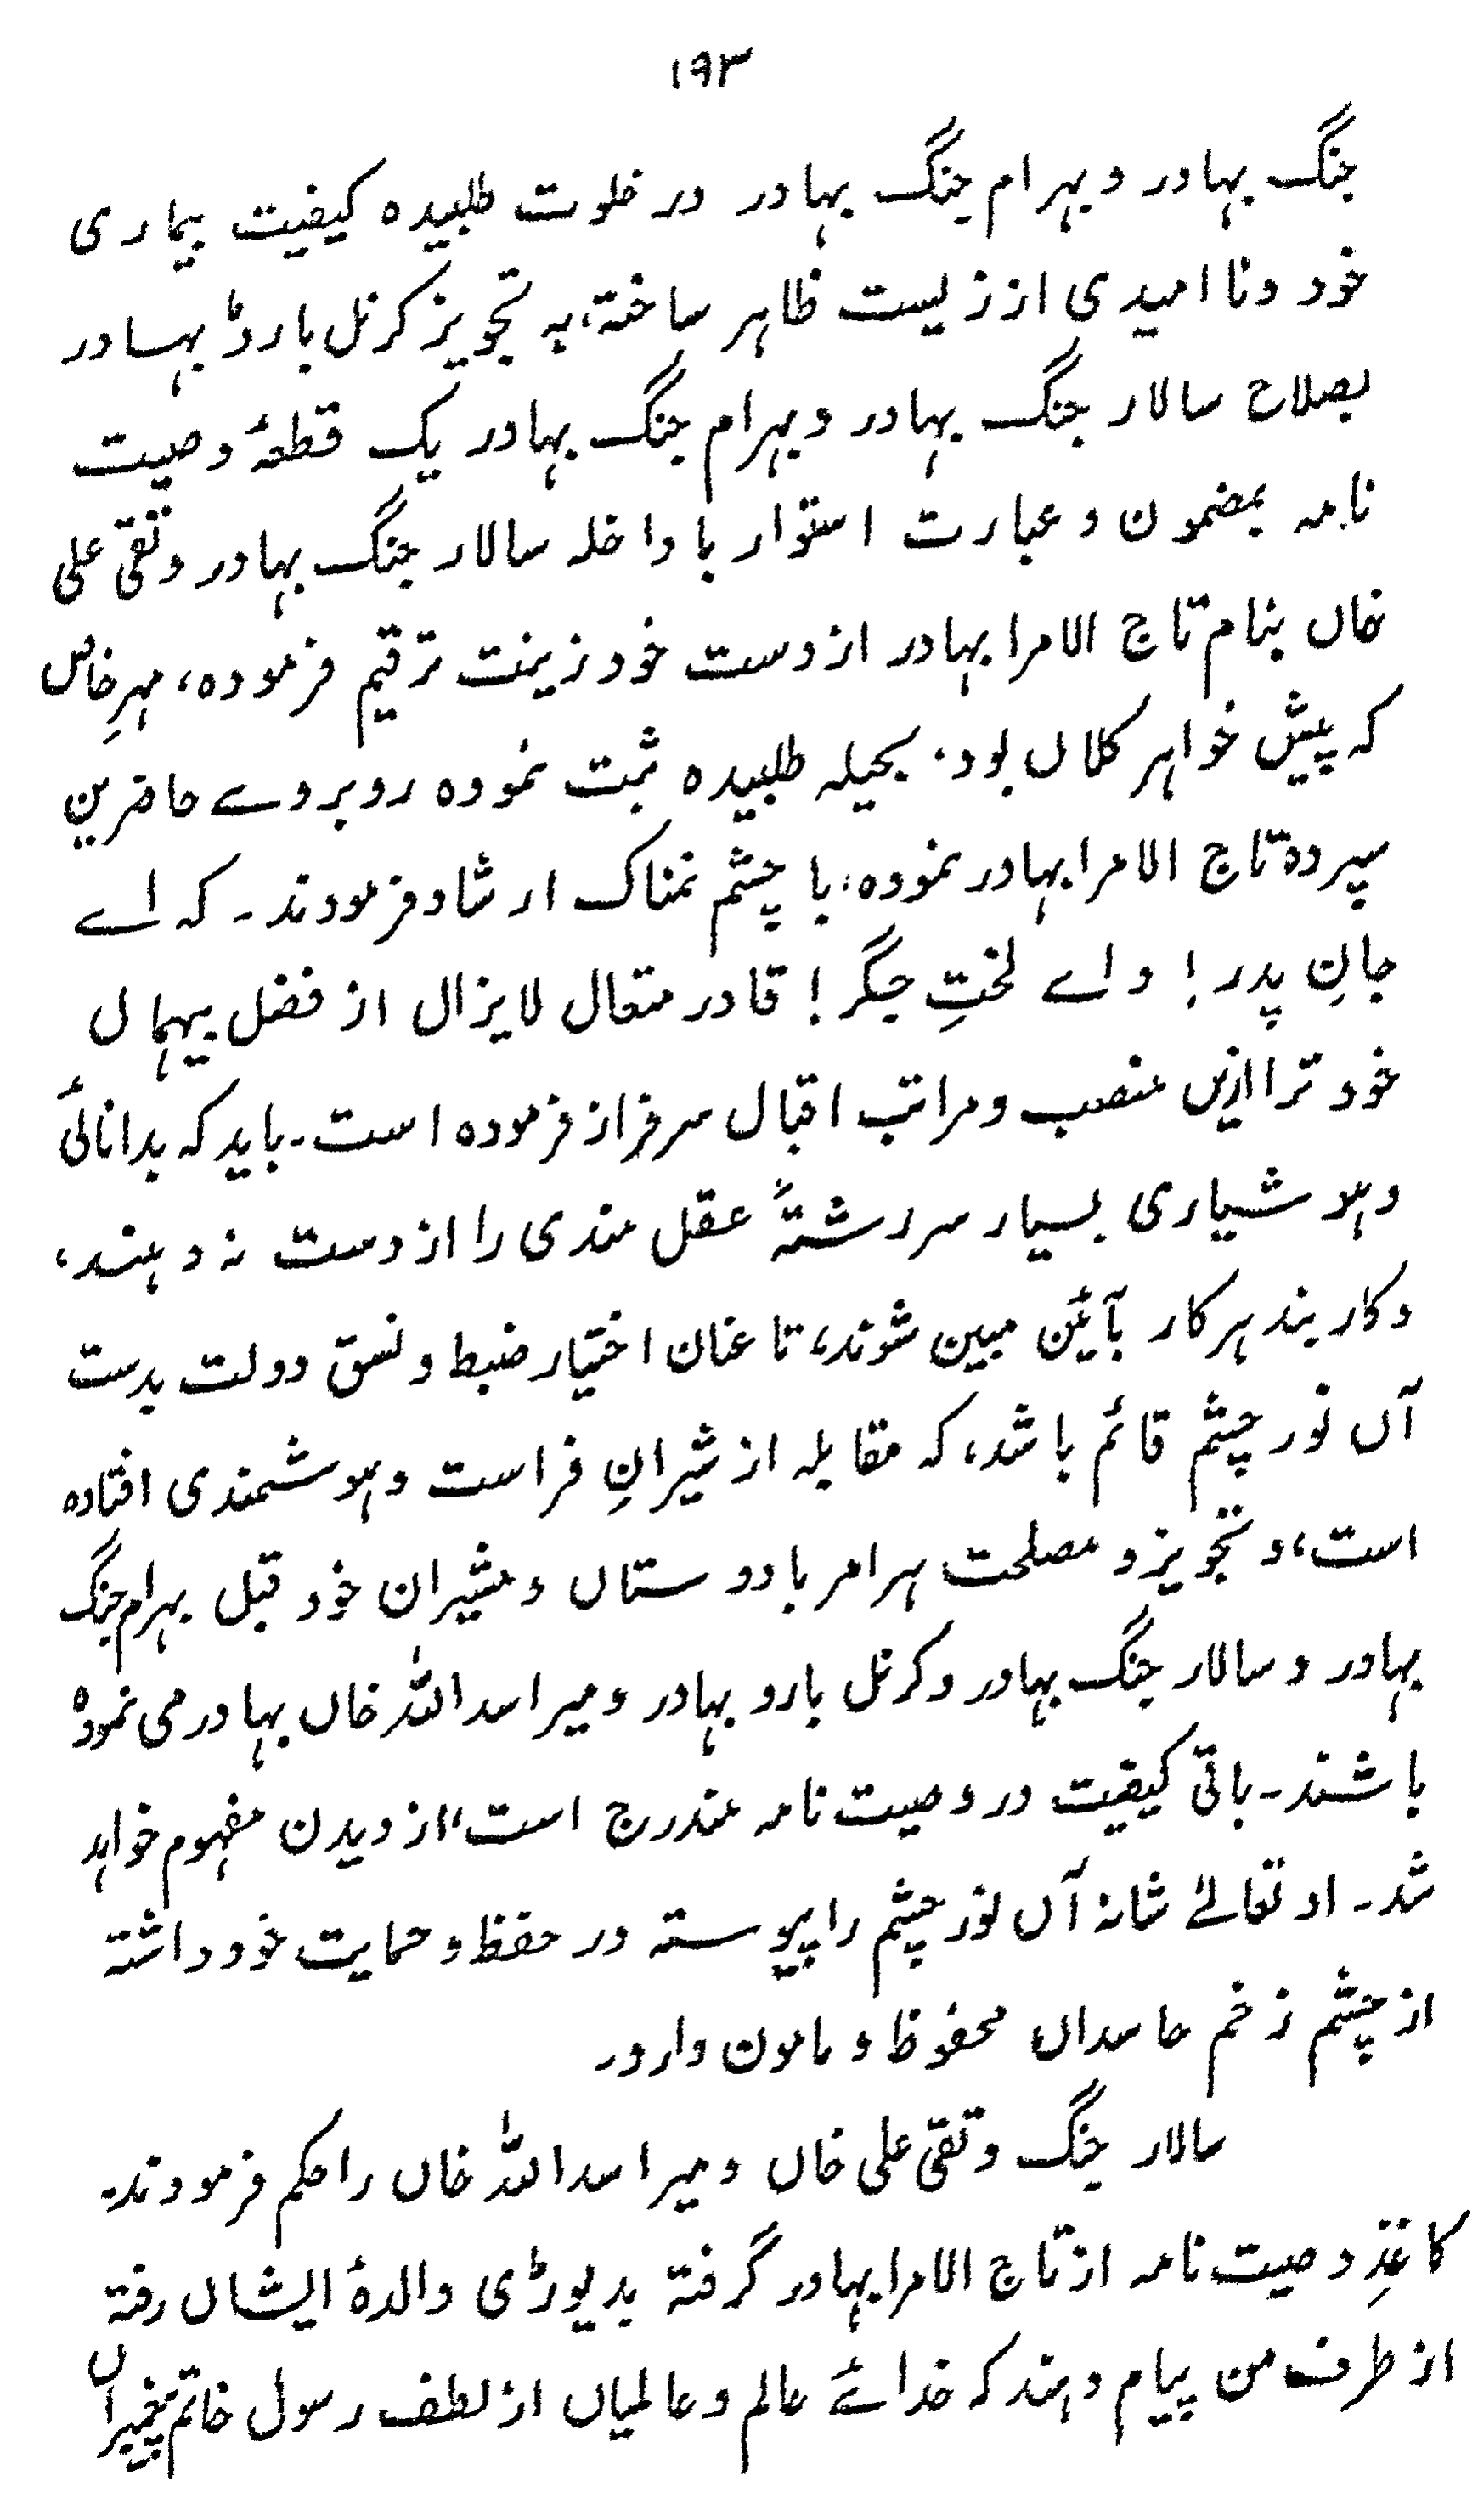 ۱۹۳
جنگ بہادر و بہرام جنگ بہادر در خلوت طلبیدہ کیفیت بیماری
خود و نا امیدی از زلیست ظاہر ساختہ، بہ تجویز کرنل بارڈ بہادر
بصلاح سالار جنگ بہادر و بہرام جنگ بہادر یک قطعۂ وصیت
نامہ بمضمون و عبارت استوار با داخلہ سالار جنگ بہادر و تقی علی
خاں بنام تاج الامرا بہادر از دست خود زینت ترقیم فرمودہ، مہرِ خاص
کہ پیش خواہر کلاں بود، بحیلہ طلبیدہ ثبت نمودہ روبروے حاضرین
سپردہ تاج الامرا بہادر نمودہ، با چشم نمناک ارشاد فرمودند۔ کہ اے
جانِ پدر! و اے لختِ جگر! قادر متعال لایزال از فضل بیہمال
خود ترا ازیں منصب و مراتب اقبال سرفراز فرمودہ است۔ باید کہ بدانائیٔ
و ہوشیاری بسیار سررشتۂ عقل مندی را از دست نہ دہند،
و کاربند ہر کار بآئین مبین شوند، تا عنان اختیار ضبط و نسق دولت بدست
آں نور چشم قائم باشد، کہ مقابلہ از شیرانِ فراست و ہوشمندی افتادہ
است، و تجویز و مصلحت ہر امر با دوستاں و مشیران خود قبل بہرام جنگ
بہادر و سالار جنگ بہادر و کرنل بارو بہادر و میر اسد اللہ خاں بہادر می نمودہ
باشند۔ باقی کیفیت در وصیت نامہ مندرج است، از دیدن مفہوم خواہد
شد۔ او تعالےٰ شانہ آں نور چشم را پیوستہ در حفظ و حمایت خود داشتہ
از چشم زخم حاسداں محفوظ و مامون دارد۔
سالار جنگ و تقی علی خاں و میر اسد اللہ خاں را حکم فرمودند۔
کاغذِ وصیت نامہ از تاج الامرا بہادر گرفتہ بدیوڑی والدۂ ایشاں رفتہ
از طرف من پیام دہند کہ خدائے عالم و عالمیاں از لطف رسول خاتم پیغمبراں